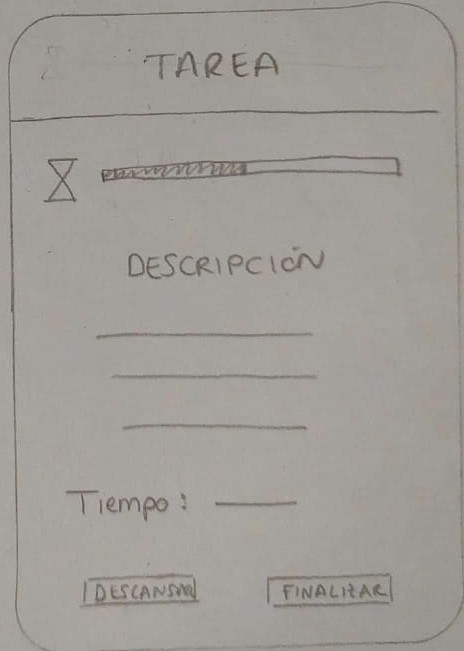 TAREA
DESCRIPCIÓN
Tiempo:
DESCANSAR
FINALIZAR